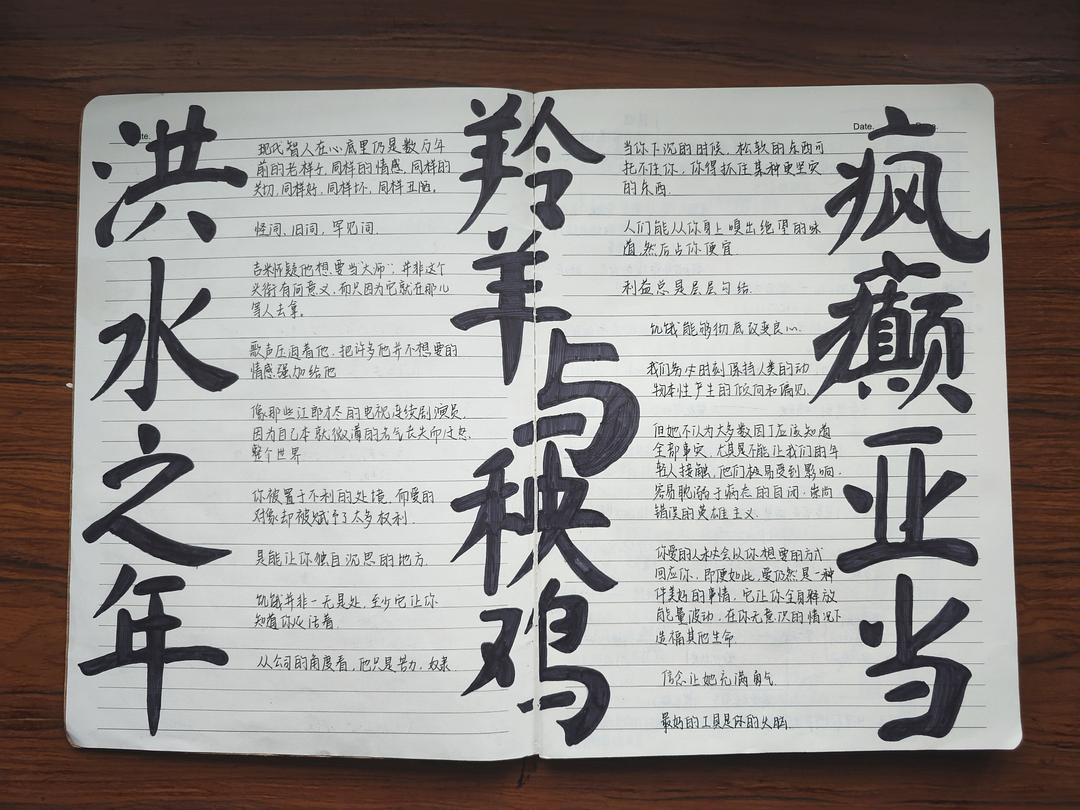 洪水之年
现代智人在心底里仍是数万年
前的老样子,同样的情感,同样的
关切,同样好,同样坏,同样丑陋。
怪词、旧词、罕见词.
吉米怀疑他想要当"大师",并非这个
头衔有何意义,而只因为它就在那儿
等人去拿。
歌声压迫着他,把许多他并不想要的
情感强加给他
像那些江郎才尽的电视连续剧演员,
因为自己本就微薄的名气丧失而迁怒
整个世界
你被置于不利的处境,而爱的
对象却被赋予了太多权利.
是能让你独自沉思的地方.
饥饿并非一无是处,至少它让你
知道你仍活着.
从公司的角度看,他只是苦力,奴隶
羚羊与秧鸡
Date.
当你下沉的时候,松软的东西可
托不住你,你得抓住某种更坚实
的东西.
人们能从你身上嗅出绝望的味
道,然后占你便宜
利益总是层层勾结.
饥饿能够彻底改变良心.
我们务必时刻保持人类的动
物本性产生的倾向和偏见.
但她不认为大多数园丁应该知道
全部事实,尤其是不能让我们的年
轻人接触,他们极易受到影响.
容易耽溺于病态的自闭,崇尚
错误的英雄主义.
你爱的人未必会以你想要的方式
回应你,即便如此,爱仍然是一种
件美好的事情,它让你全身释放
能量波动,在你无意识的情况下
造福其他生命
信念让她充满勇气.
最好的工具是你的大脑.
疯癫亚当